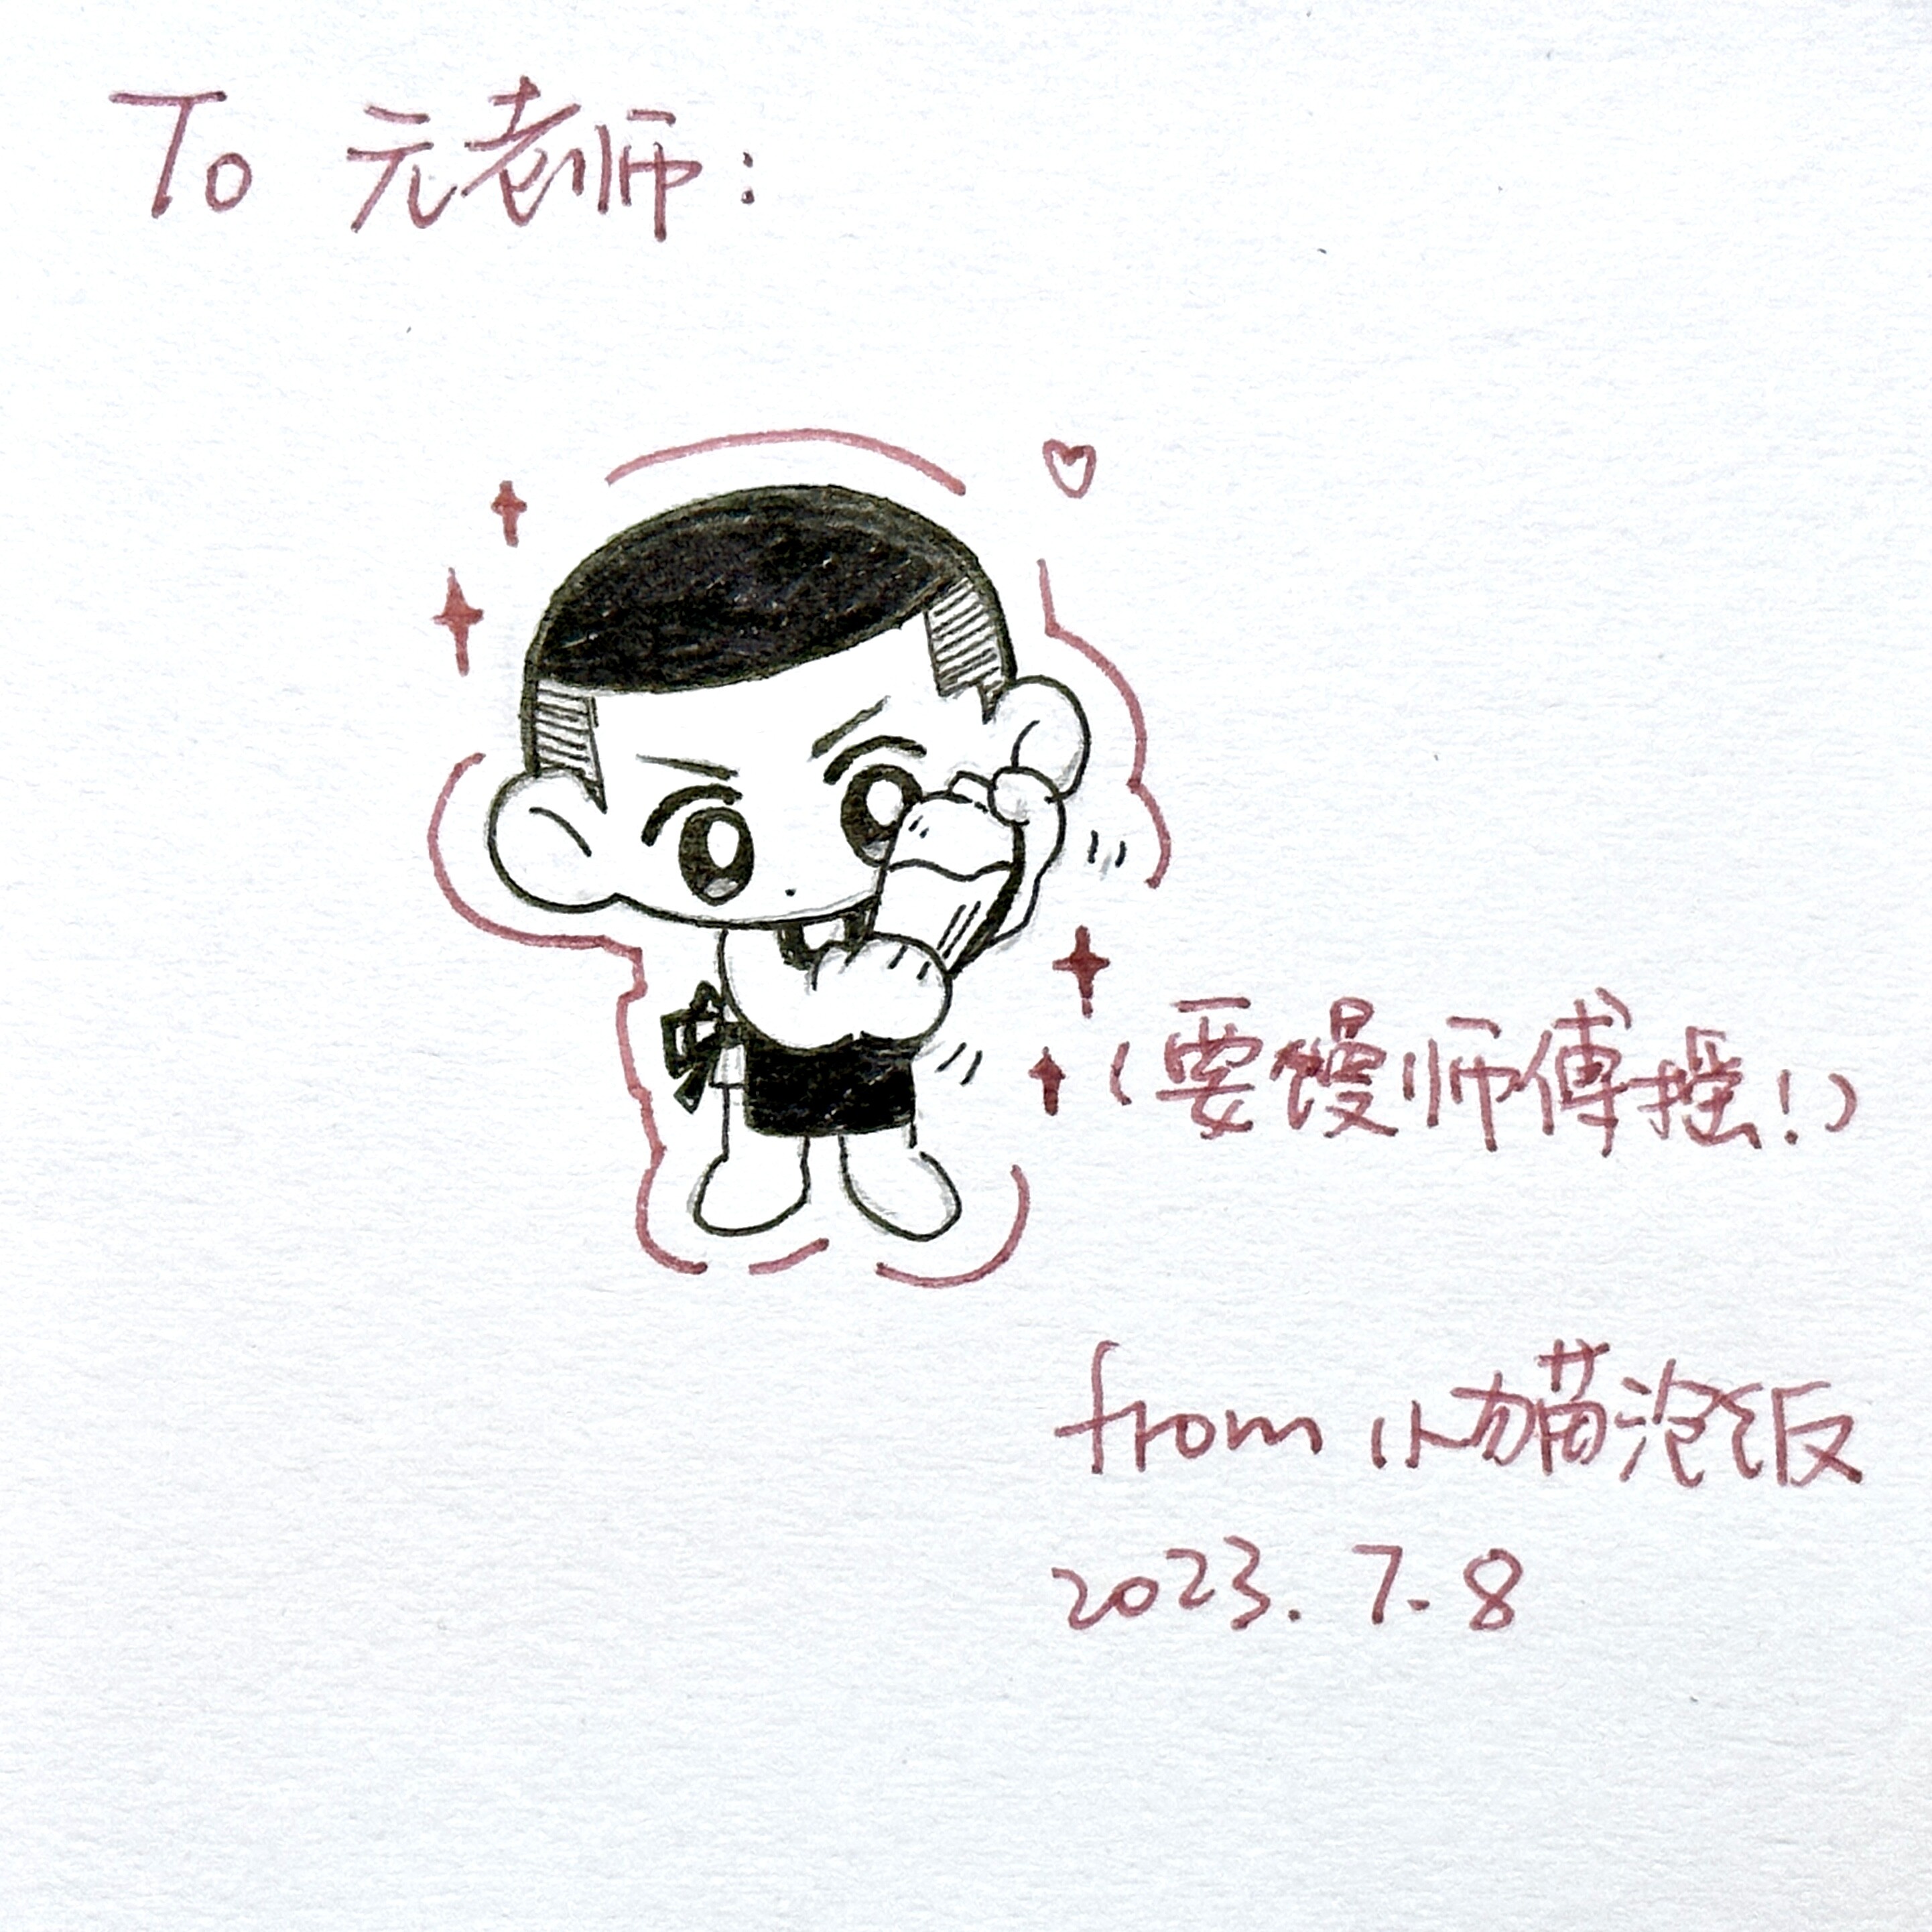 To 元老师：
(要馒师傅摇！)
from 小猫泡饭
2023.7.8